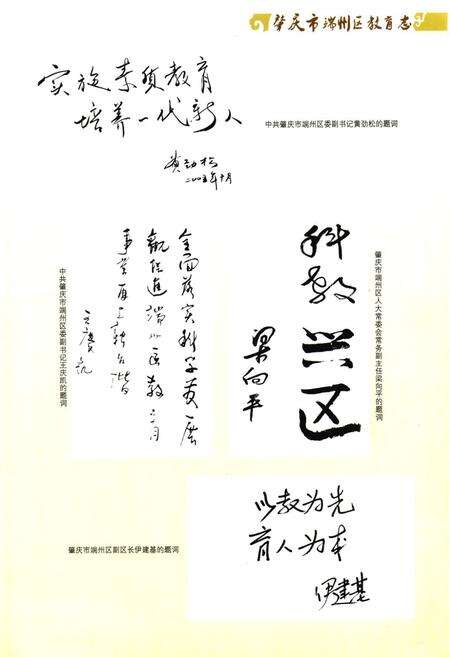 肇庆市端州区教育志
实施素质教育
培养一代新人
黄劲松
二〇〇五年十月
中共肇庆市端州区委副书记黄劲松的题词
全面落实科学发展
观促进端州区教育
事业再上新台阶
王庆凯
中共肇庆市端州区委副书记王庆凯的题词
科教兴区
梁向平
肇庆市端州区人大常委会常务副主任梁向平的题词
以教为先
育人为本
伊建基
肇庆市端州区副区长伊建基的题词